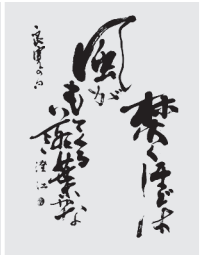 焚くほどは
風が
もてくる
落葉かな
良寛の句
澄江